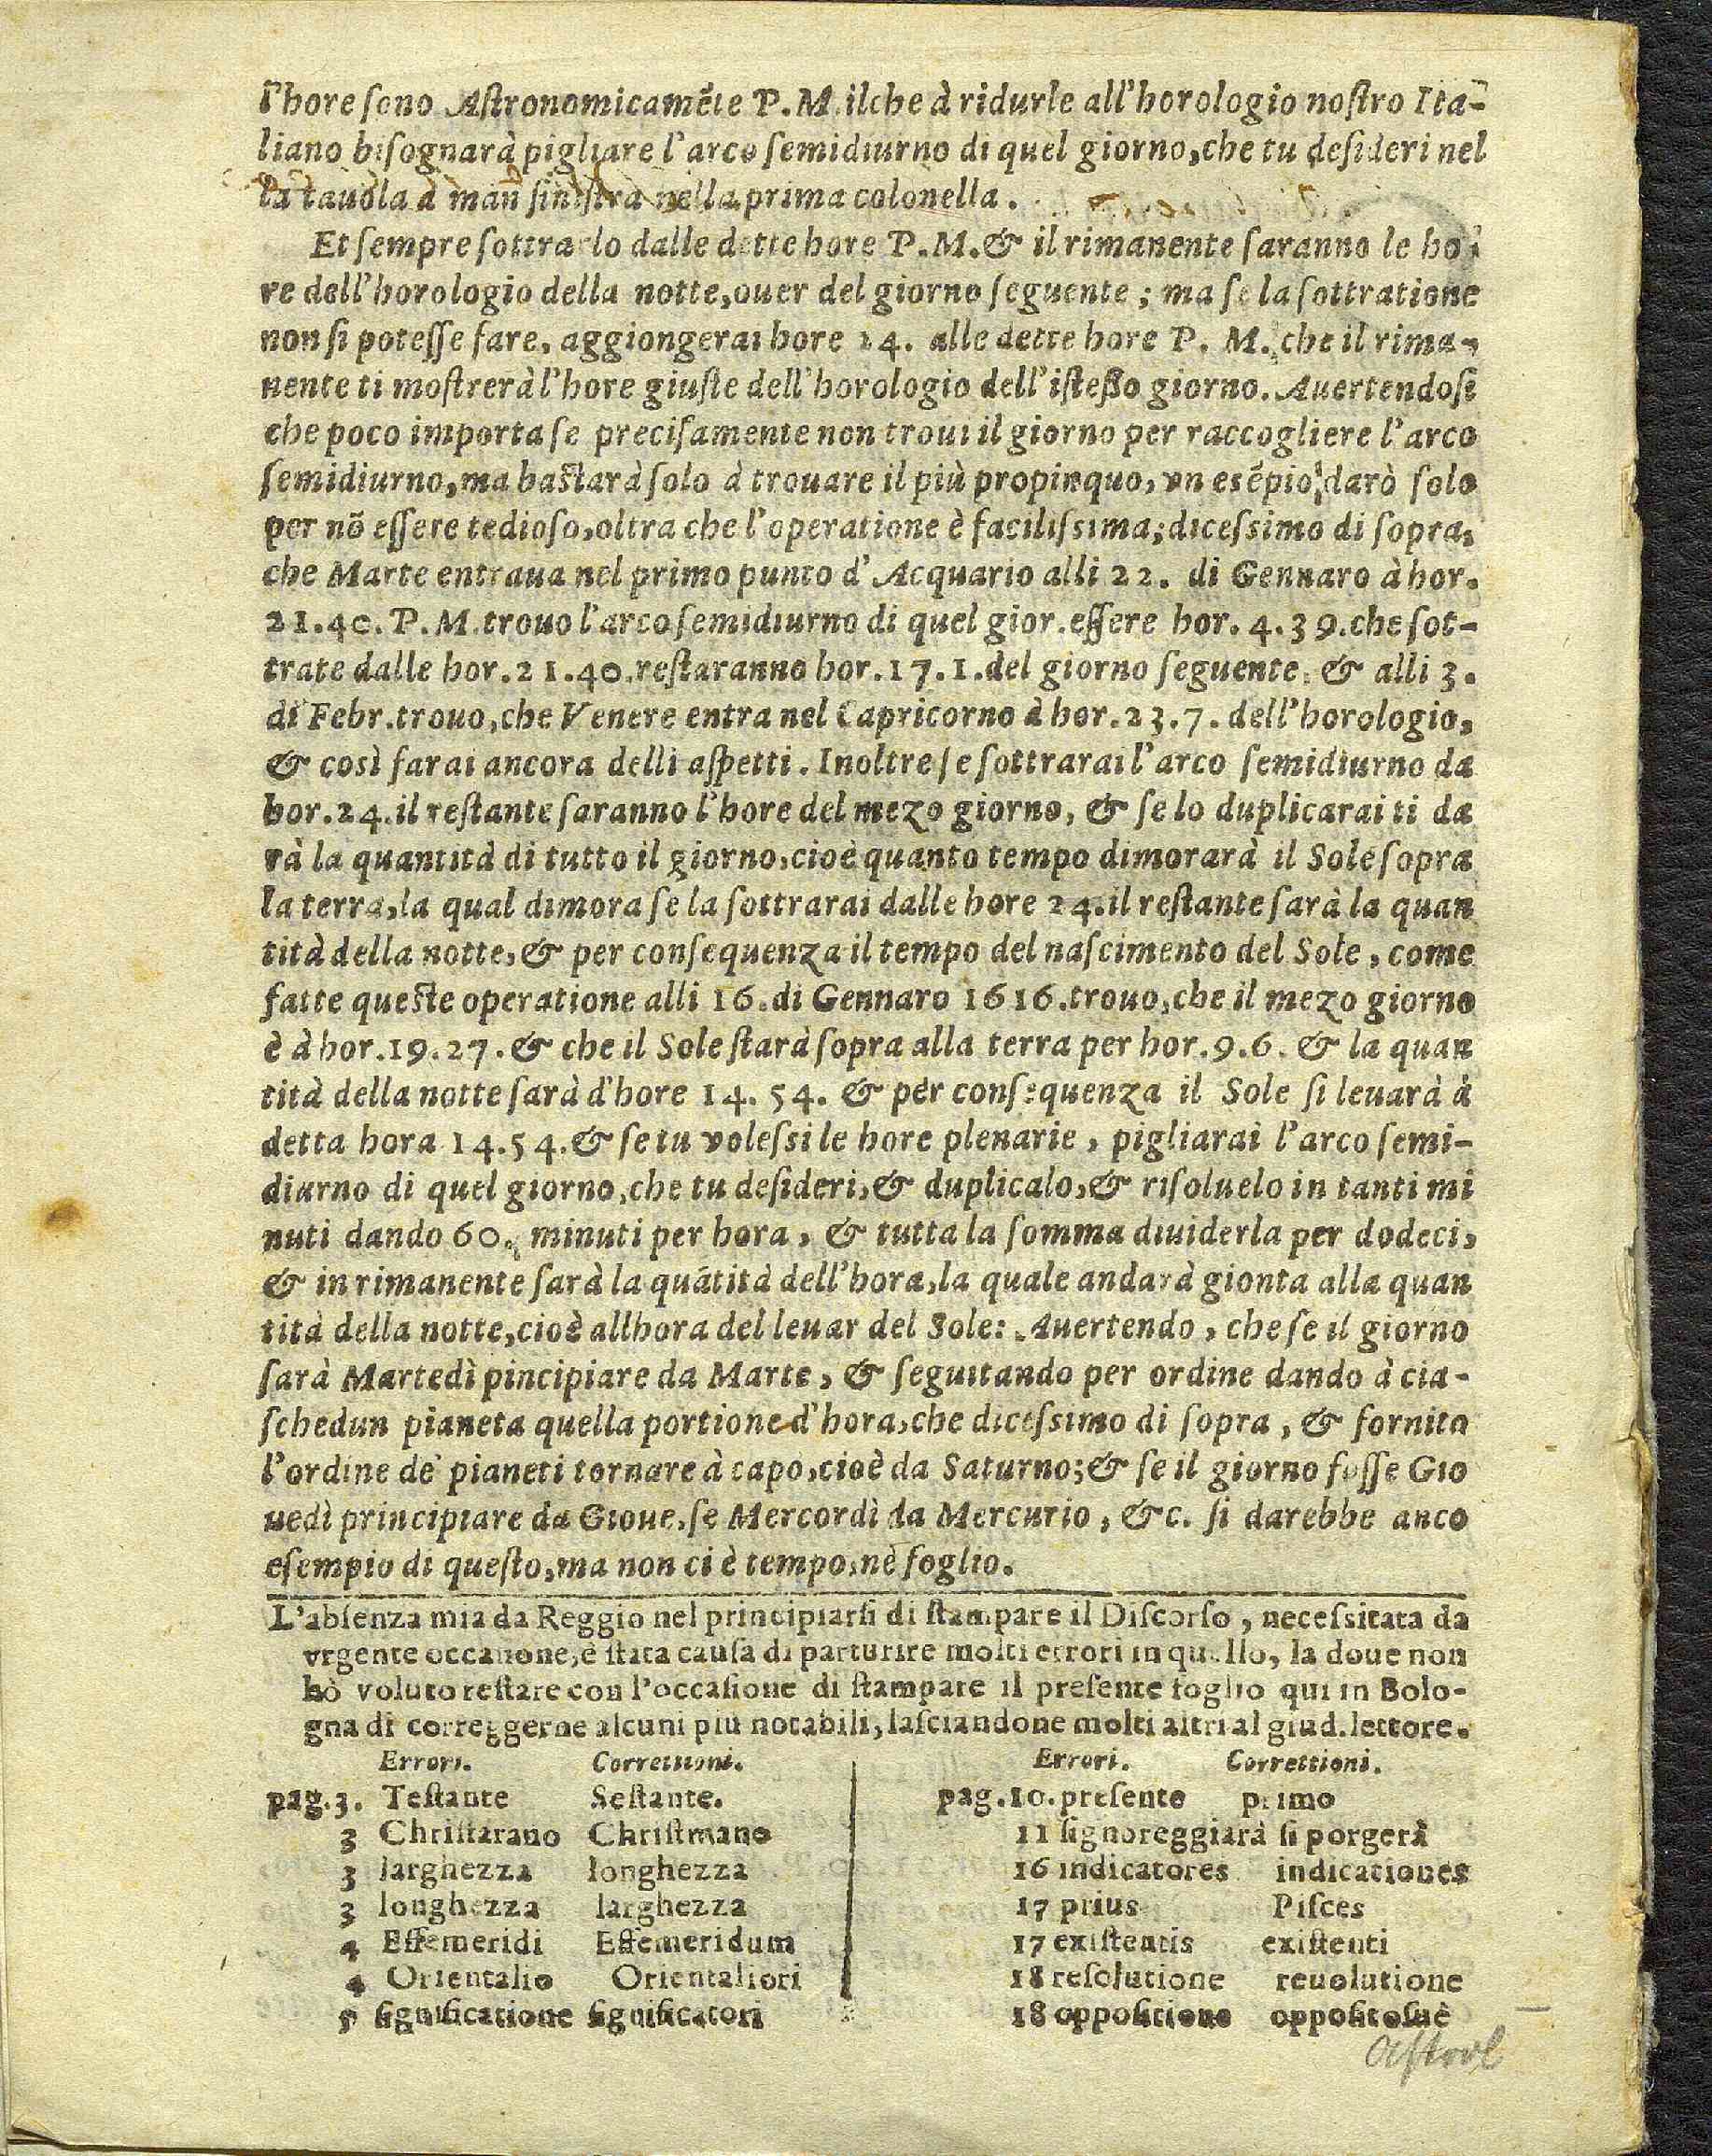 l'hore sono Astronomicamẽte P.M. ilche à ridurle all'horologio nostro Ita-
liano bisognarà pigliare l'arco semidiurno di quel giorno, che tu desideri nel
la tauola à man sinistra nella prima colonella.
Et sempre sottrarlo dalle dette hore P.M. & il rimanente saranno le ho
re dell'horologio della notte, ouer del giorno seguente; ma se la sottratione
non si potesse fare, aggiongerai hore 24. alle dette hore P. M. che il rima-
nente ti mostrerà l'hore giuste dell'horologio dell'istesso giorno. Auertendosi
che poco importa se precisamente non troui il giorno per raccogliere l'arco
semidiurno, ma bastarà solo à trouare il più propinquo, vn esẽpio darò solo
per nõ essere tedioso, oltra che l'operatione è facilissima; dicessimo di sopra,
che Marte entraua nel primo punto d'Acquario alli 22. di Gennaro à hor.
21.40. P.M. trouo l'arco semidiurno di quel gior. essere hor. 4.39. che sot-
trate dalle hor. 21.40. restaranno hor. 17.1. del giorno seguente. & alli 3.
di Febr. trouo, che Venere entra nel Capricorno à hor. 23.7. dell'horologio,
& così farai ancora delli aspetti. Inoltre se sottrarai l'arco semidiurno da
hor. 24. il restante saranno l'hore del mezo giorno, & se lo duplicarai ti da
rà la quantità di tutto il giorno, cioè quanto tempo dimorarà il Sole sopra
la terra, la qual dimora se la sottrarai dalle hore 24. il restante sarà la quan
tità della notte, & per consequenza il tempo del nascimento del Sole, come
fatte queste operatione alli 16. di Gennaro 1616. trouo, che il mezo giorno
è à hor. 19.27. & che il Sole starà sopra alla terra per hor. 9.6. & la quan
tità della notte sarà d'hore 14. 54. & per consequenza il Sole si leuarà à
detta hora 14.54. & se tu volessi le hore plenarie, pigliarai l'arco semi-
diurno di quel giorno, che tu desideri, & duplicalo, & risoluelo in tanti mi
nuti dando 60. minuti per hora, & tutta la somma diuiderla per dodeci,
& in rimanente sarà la quãtità dell'hora, la quale andarà gionta alla quan
tità della notte, cioè allhora del leuar del Sole: Auertendo, che se il giorno
sarà Martedì pincipiare da Marte, & seguitando per ordine dando à cia-
schedun pianeta quella portione d'hora, che dicessimo di sopra, & fornito
l'ordine de' pianeti tornare à capo, cioè da Saturno; & se il giorno fosse Gio
uedì principiare da Gioue, se Mercordì da Mercurio, &c. si darebbe anco
esempio di questo, ma non ci è tempo, nè foglio.
L'absenza mia da Reggio nel principiarsi di stampare il Discorso, necessitata da
vrgente occasione, è stata causa di parturire molti errori in quello, la doue non
hò voluto restare con l'occasione di stampare il presente foglio qui in Bolo-
gna di correggerne alcuni più notabili, lasciandone molti altri al giud. lettore.
Errori. Correttioni. Errori. Correttioni.
pag. 3. Testante Sestante. pag. 10. presente primo
3 Christarano Christmano 11 signoreggiarà si porgerà
3 larghezza longhezza 16 indicatores indicationes
3 longhezza larghezza 17 prius Pisces
4 Effemeridi Effemeridum 17 existentis existenti
4 Orientalio Orientaliori 18 resolutione reuolutione
5 significatione significatori 18 oppositione oppositosuè
Astrol